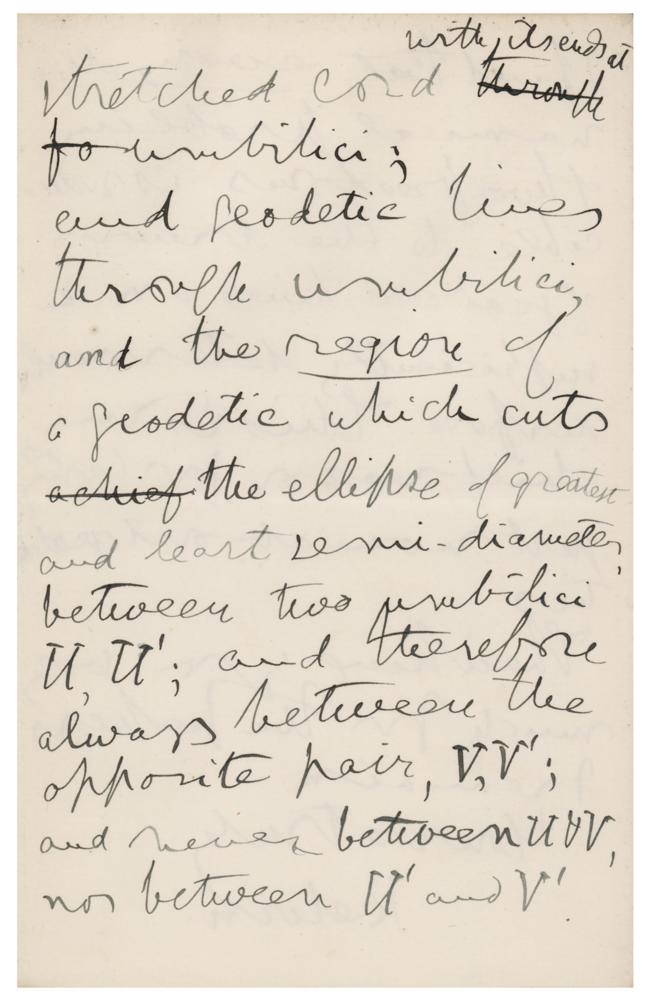 with its ends at
stretched cord through
to umbilici;
and geodetic lines
through umbilici,
and the region of
a geodetic which cuts
a chief the ellipse of greatest
and least semi-diameter,
between two umbilici
U, U'; and therefore
always between the
opposite pair, V, V';
and never between U & V,
nor between U' and V'.